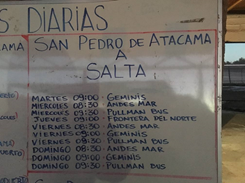 S DIARIAS
SAN PEDRO DE ATACAMA
A
SALTA
MARTES 09:00 GEMINIS
MIERCOLES 08:30 ANDES MAR
MIERCOLES 09:30 PULLMAN BUS
JUEVES 09:00 FRONTERA DEL NORTE
VIERNES 08:30 ANDES MAR
VIERNES 09:00 GEMINIS
VIERNES 09:30 PULLMAN BUS
DOMINGO 08:30 ANDES MAR
DOMINGO 09:00 GEMINIS
DOMINGO 09:30 PULLMAN BUS